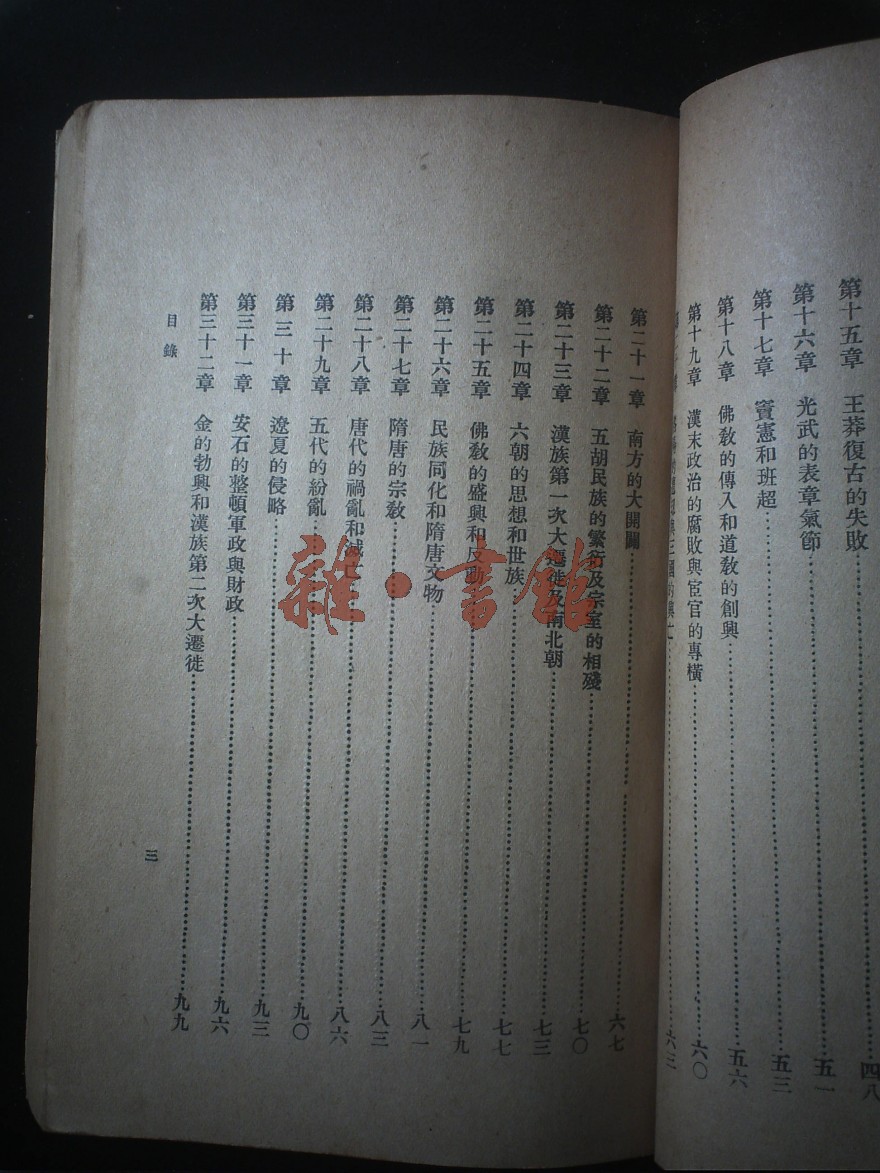 第十五章　王莽復古的失敗……四八
第十六章　光武的表章氣節……五一
第十七章　竇憲和班超……五三
第十八章　佛教的傳入和道教的創興……五六
第十九章　漢末政治的腐敗與宦官的專橫……六〇
三國的……六三
第二十一章　南方的大開闢……六七
第二十二章　五胡民族的繁衍及宗室的相殘……七〇
第二十三章　漢族第一次大遷徙及南北朝……七三
第二十四章　六朝的思想和世族……七七
第二十五章　佛教的盛興和反動……七九
第二十六章　民族同化和隋唐文物……八一
第二十七章　隋唐的宗教……八三
第二十八章　唐代的禍亂和滅亡……八六
第二十九章　五代的紛亂……九〇
第三十章　遼夏的侵略……九三
第三十一章　安石的整頓軍政與財政……九六
第三十二章　金的勃興和漢族第二次大遷徙……九九
目錄
三
雜·書館